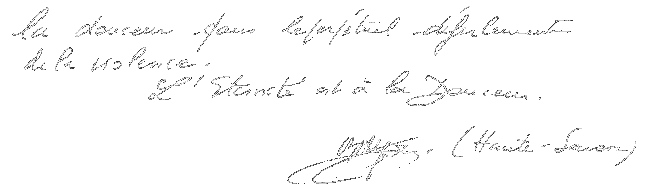 la douceur dans le perpétuel déferlement
de la violence.
L'Eternité est à la Douceur.
(Haute-Savoie)